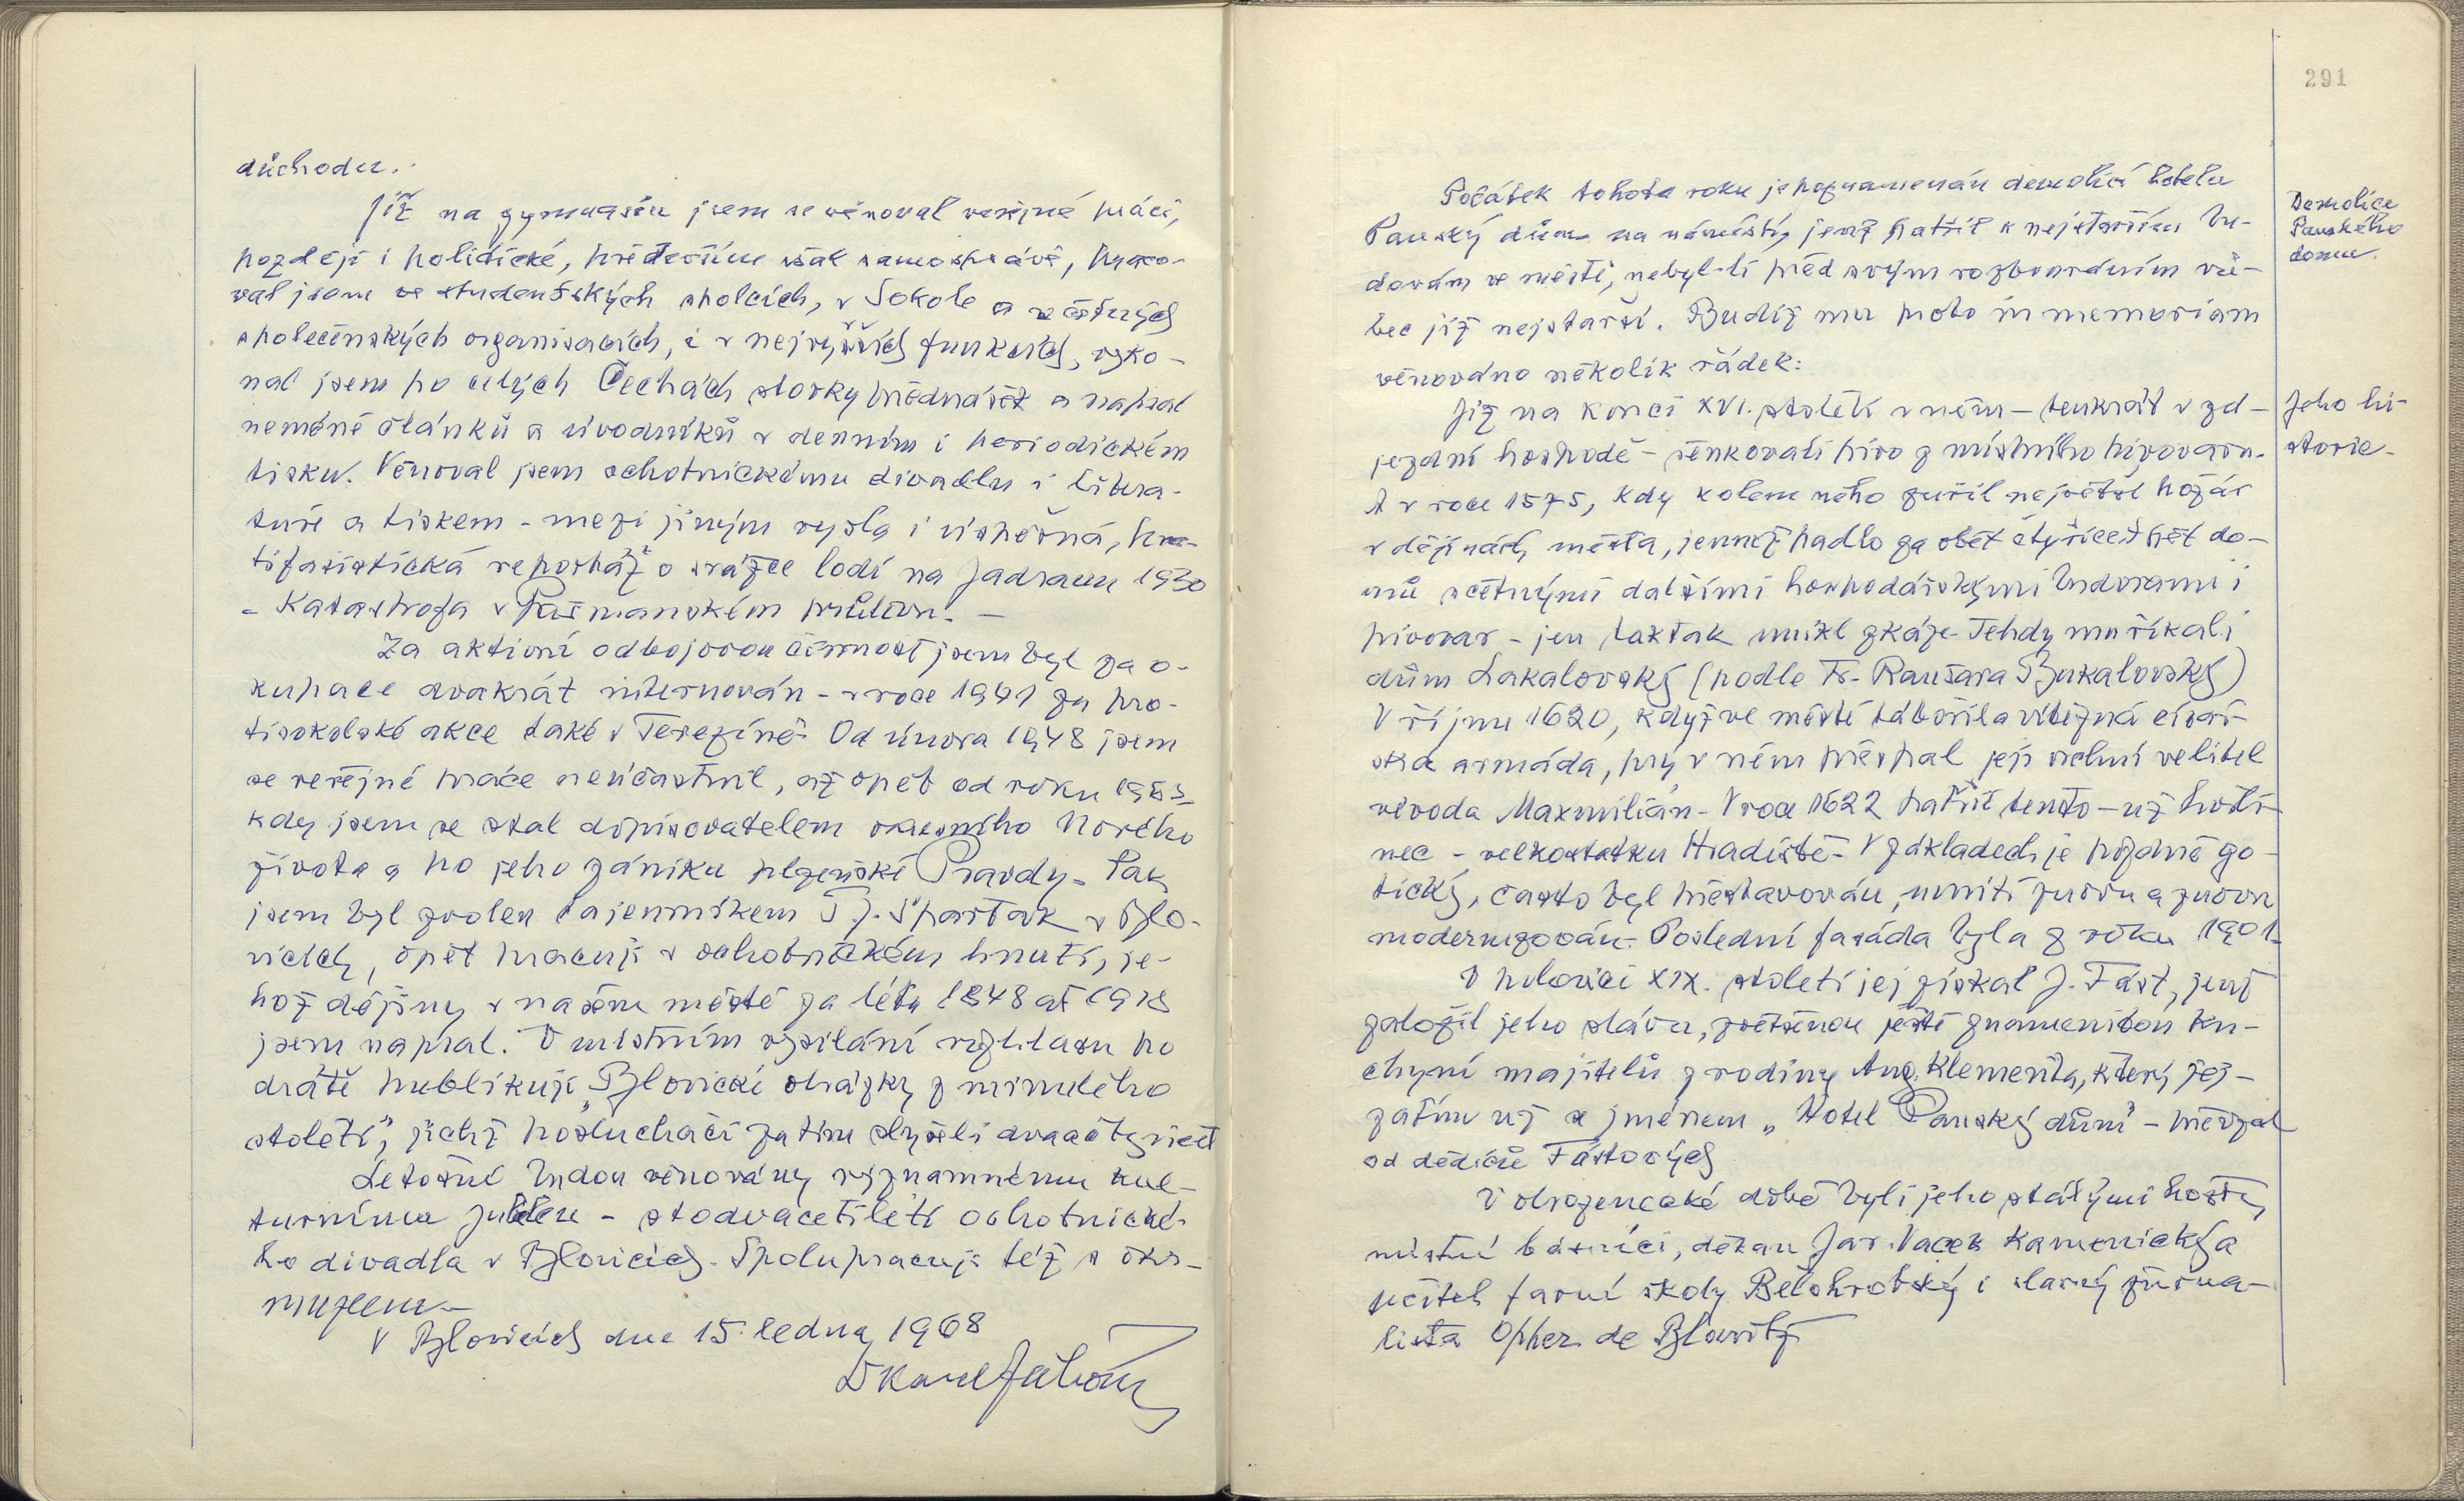 důchodu.
Již na gymnasiu jsem se věnoval veřejné práci,
později i politické, především však samosprávě, praco-
val jsem ve studentských spolcích, v Sokole a v četných
společenských organisacích, i v nejvyšších funkcích, vyko-
nal jsem po celých Čechách stovky přednášek a napsal
neméně článků a úvodníků v denním i periodickém
tisku. Věnoval jsem ochotnickému divadlu i litera-
tuře a tiskem - mezi jiným vyšla i úspěšná,
tifašistická reportáž o srážce lodí na Jadranu 1930
- Katastrofa v Pašmanském průlivu. -
Za aktivní odbojovou činnost jsem byl za o-
kupace dvakrát internován - v roce 1941 za pro-
tisokolské akce také v Terezíně. Od února 1948 jsem
se veřejné práce neúčastnil, až opět od roku
kdy jsem se stal dopisovatelem okresního Nového
života a po jeho zániku plzeňské Pravdy. Pak
jsem byl zvolen tajemníkem T.J. Spartak v Blo-
vicích, opět pracuji v ochotnickém hnutí, je-
hož dějiny v našem městě za léta 1848 až 1918
jsem napsal. V místním vysílání rozhlasu po
drátě publikuji "Blovické obrázky z minulého
století", jichž posluchači zatím slyšeli dvaačtyřicet
Letošní budou věnovány významnému kul-
turnímu jubileu - stodvacetiletí ochotnické-
ho divadla v Blovicích. Spolupracuji též s okr.
muzeem. -
V Blovicích dne 15. ledna 1968
Dr Karel
291
Počátek tohoto roku je poznamenán demolicí hotelu
Panský dům na náměstí, jenž patřil k nejstarším bu-
dovám ve městě, nebyl-li před svým rozbouráním vů-
bec již nejstarší. Budiž mu proto in memoriam
věnováno několik řádek:
Již na konci XVI. století v něm - tenkrát v zá-
jezdní hospodě - šenkovali pivo z místního pivovaru.
A v roce 1575, kdy kolem něho zuřil největší požár
v dějinách města, jemuž padlo za oběť čtyřicet pět do-
mů s četnými dalšími hospodářskými budovami i
pivovar - jen taktak unikl zkáze. Tehdy mu říkali
dům Lakalovský (podle Fr. Raušara Bukalovský)
V říjnu 1620, když ve městě tábořila vítězná císař-
ská armáda, prý v něm přespal její vrchní velitel
vévoda Maxmilián. V roce 1622 patřil tento - už hosti-
nec - velkostatku Hradiště. V základech je pozdně go-
tický, často byl přestavován, uvnitř znovu a znovu
modernizován. Poslední fasáda byla z roku 1901.
V polovici XIX. století jej získal J. Fást, jenž
založil jeho slávu, zvětšenou ještě znamenitou ku-
chyní majitelů z rodiny Aug. Klementa, který jej -
zatím už s jménem "Hotel Panský dům" - převzal
od dědiců Fástových
V obrozenecké době byli jeho stálými hosty
místní básníci, děkan Jar. Vacek Kamenický a
učitel farní školy Bělohrobský i slavný žurna-
lista Opper de Blowitz
Demolice
Panského
domu.
Jeho hi-
storie.